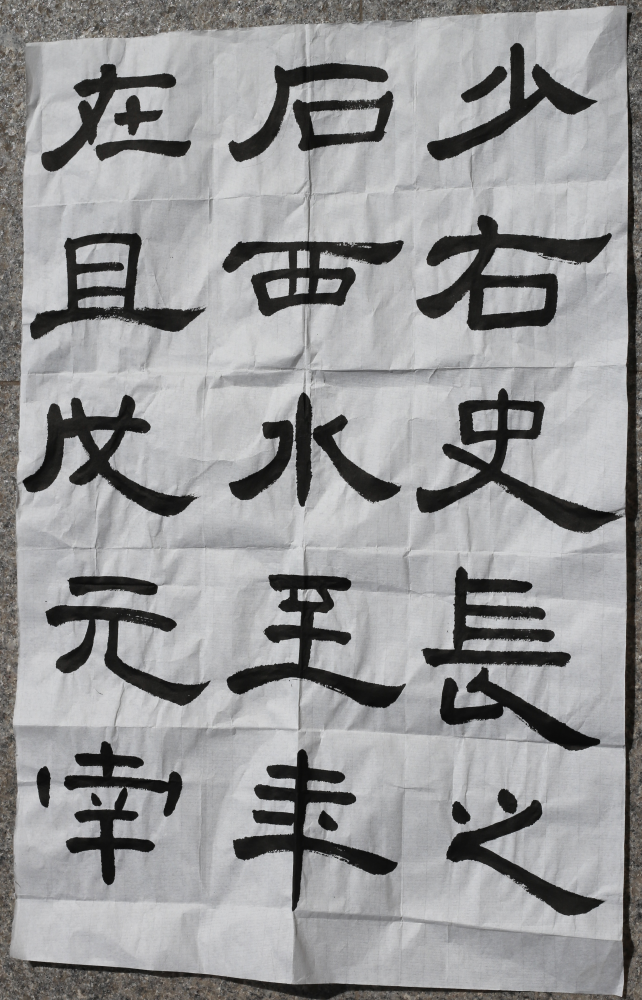 少右史長之
石西水至年
在且戊元宰